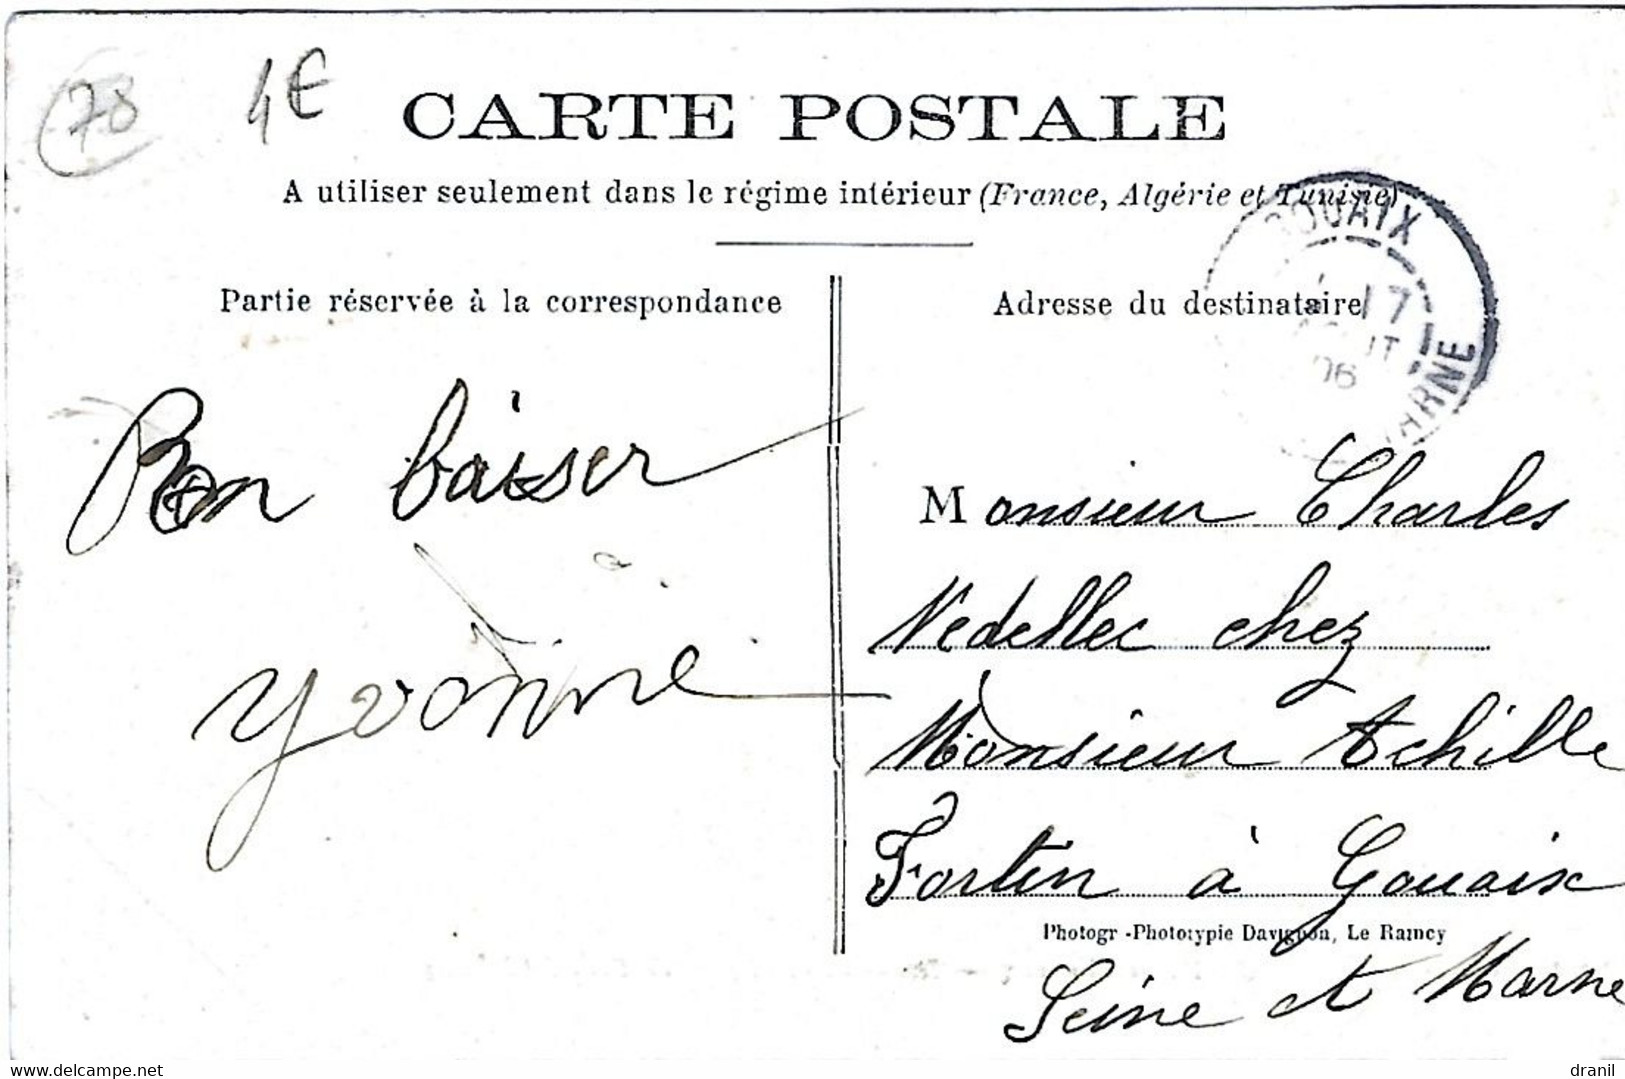 78
4€
CARTE POSTALE
A utiliser seulement dans le régime intérieur (France, Algérie et Tunisie)
Partie réservée à la correspondance
Adresse du destinataire
GOUAIX
17
AOUT
06
MARNE
Bon baiser
Yvonne
Monsieur Charles
Nedellec chez
Monsieur Achille
Fortin à Gouaix
Photogr -Phototypie Davignon, Le Raincy
Seine et Marne
www.delcampe.net
dranil